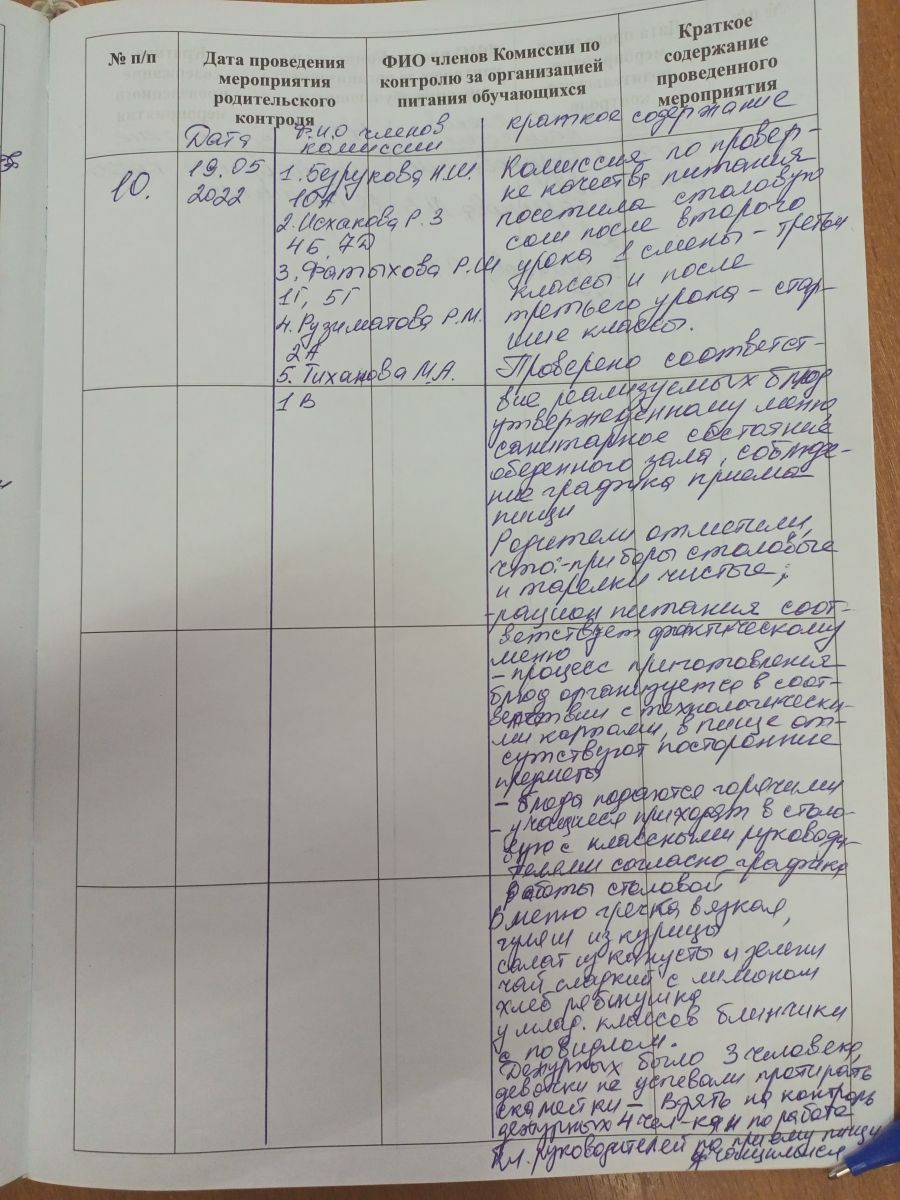 № п/п
Дата проведения
мероприятия
родительского
контроля
ФИО членов Комиссии по
контролю за организацией
питания обучающихся
Краткое
содержание
проведенного
мероприятия
Дата
Ф.И.О членов
комиссии
краткое содержание
10.
19.05
2022
1. Бурукова Н.Ш.
10А
2. Исхакова Р. З
4Б, 7Д
3. Фатыхова Р. Ш
1Г, 5Г
4. Рузиматова Р.М.
2А
5. Тиханова М.А.
1В
Комиссия по провер-
ке качества питания
посетила столовую
сош после второго
урока 1 смены - третьи
классы и после
третьего урока - стар-
шие классы.
Проверено соответст-
вие реализуемых блюд
утвержденному меню,
санитарное состояние
обеденного зала, соблюде-
ние графика приема
пищи
Родители отметили,
что: - приборы столовые
и тарелки чистые;
- рацион питания соот-
ветствует фактическому
меню
- процесс приготовления
блюд организуется в соот-
ветствии с технологически-
ми картами, в пище от-
сутствуют посторонние
предметы
- блюда подаются горячими
- учащиеся приходят в столо-
вую с классными руководи-
телями согласно графика
работы столовой
В меню гречка вязкая,
гуляш из курицы
салат из капусты и зелени
чай сладкий с лимоном
хлеб рябинушка
у млад. классов блинчики
с повидлом.
Дежурных было 3 человека,
девочки не успевали протирать
скамейки - Взять на контроль
дежурных 4 чел-ка и по работе
Кл. руководителей по приему пищи
учащимися